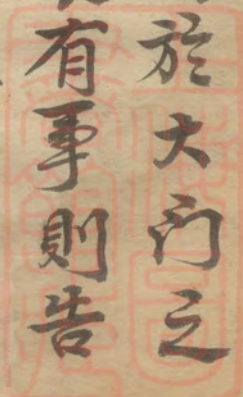 於大门之
有事則告